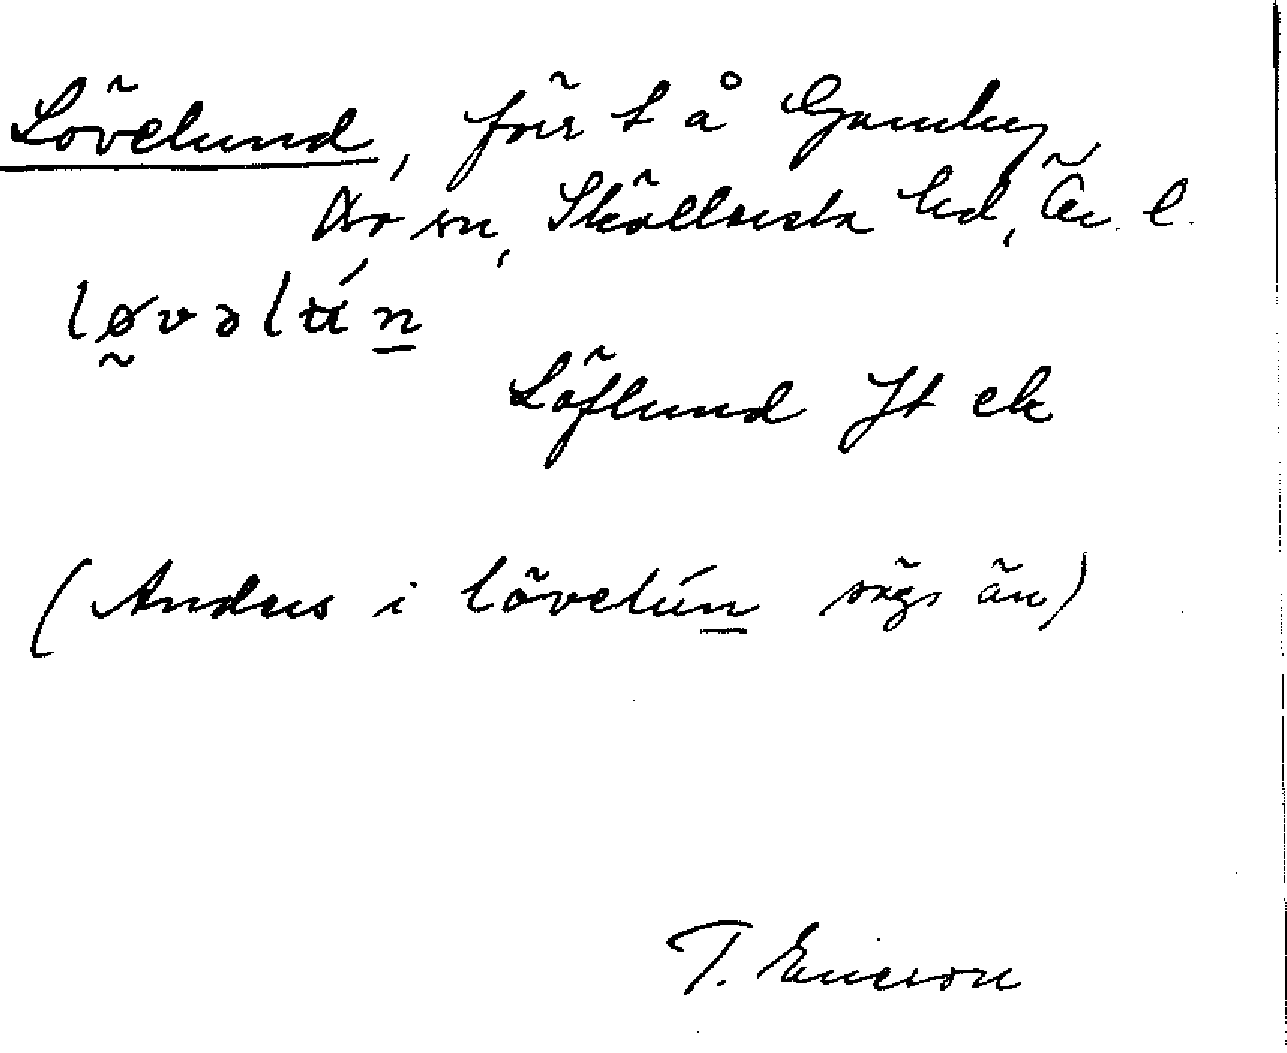 Lövelund, förr t å Gamleby
Ö sn, Skyllersta hd, Ör. l.
løvəlʉ́n
Löflund Jt ek
(Anders i lövelún sägs än)
T. Ericson